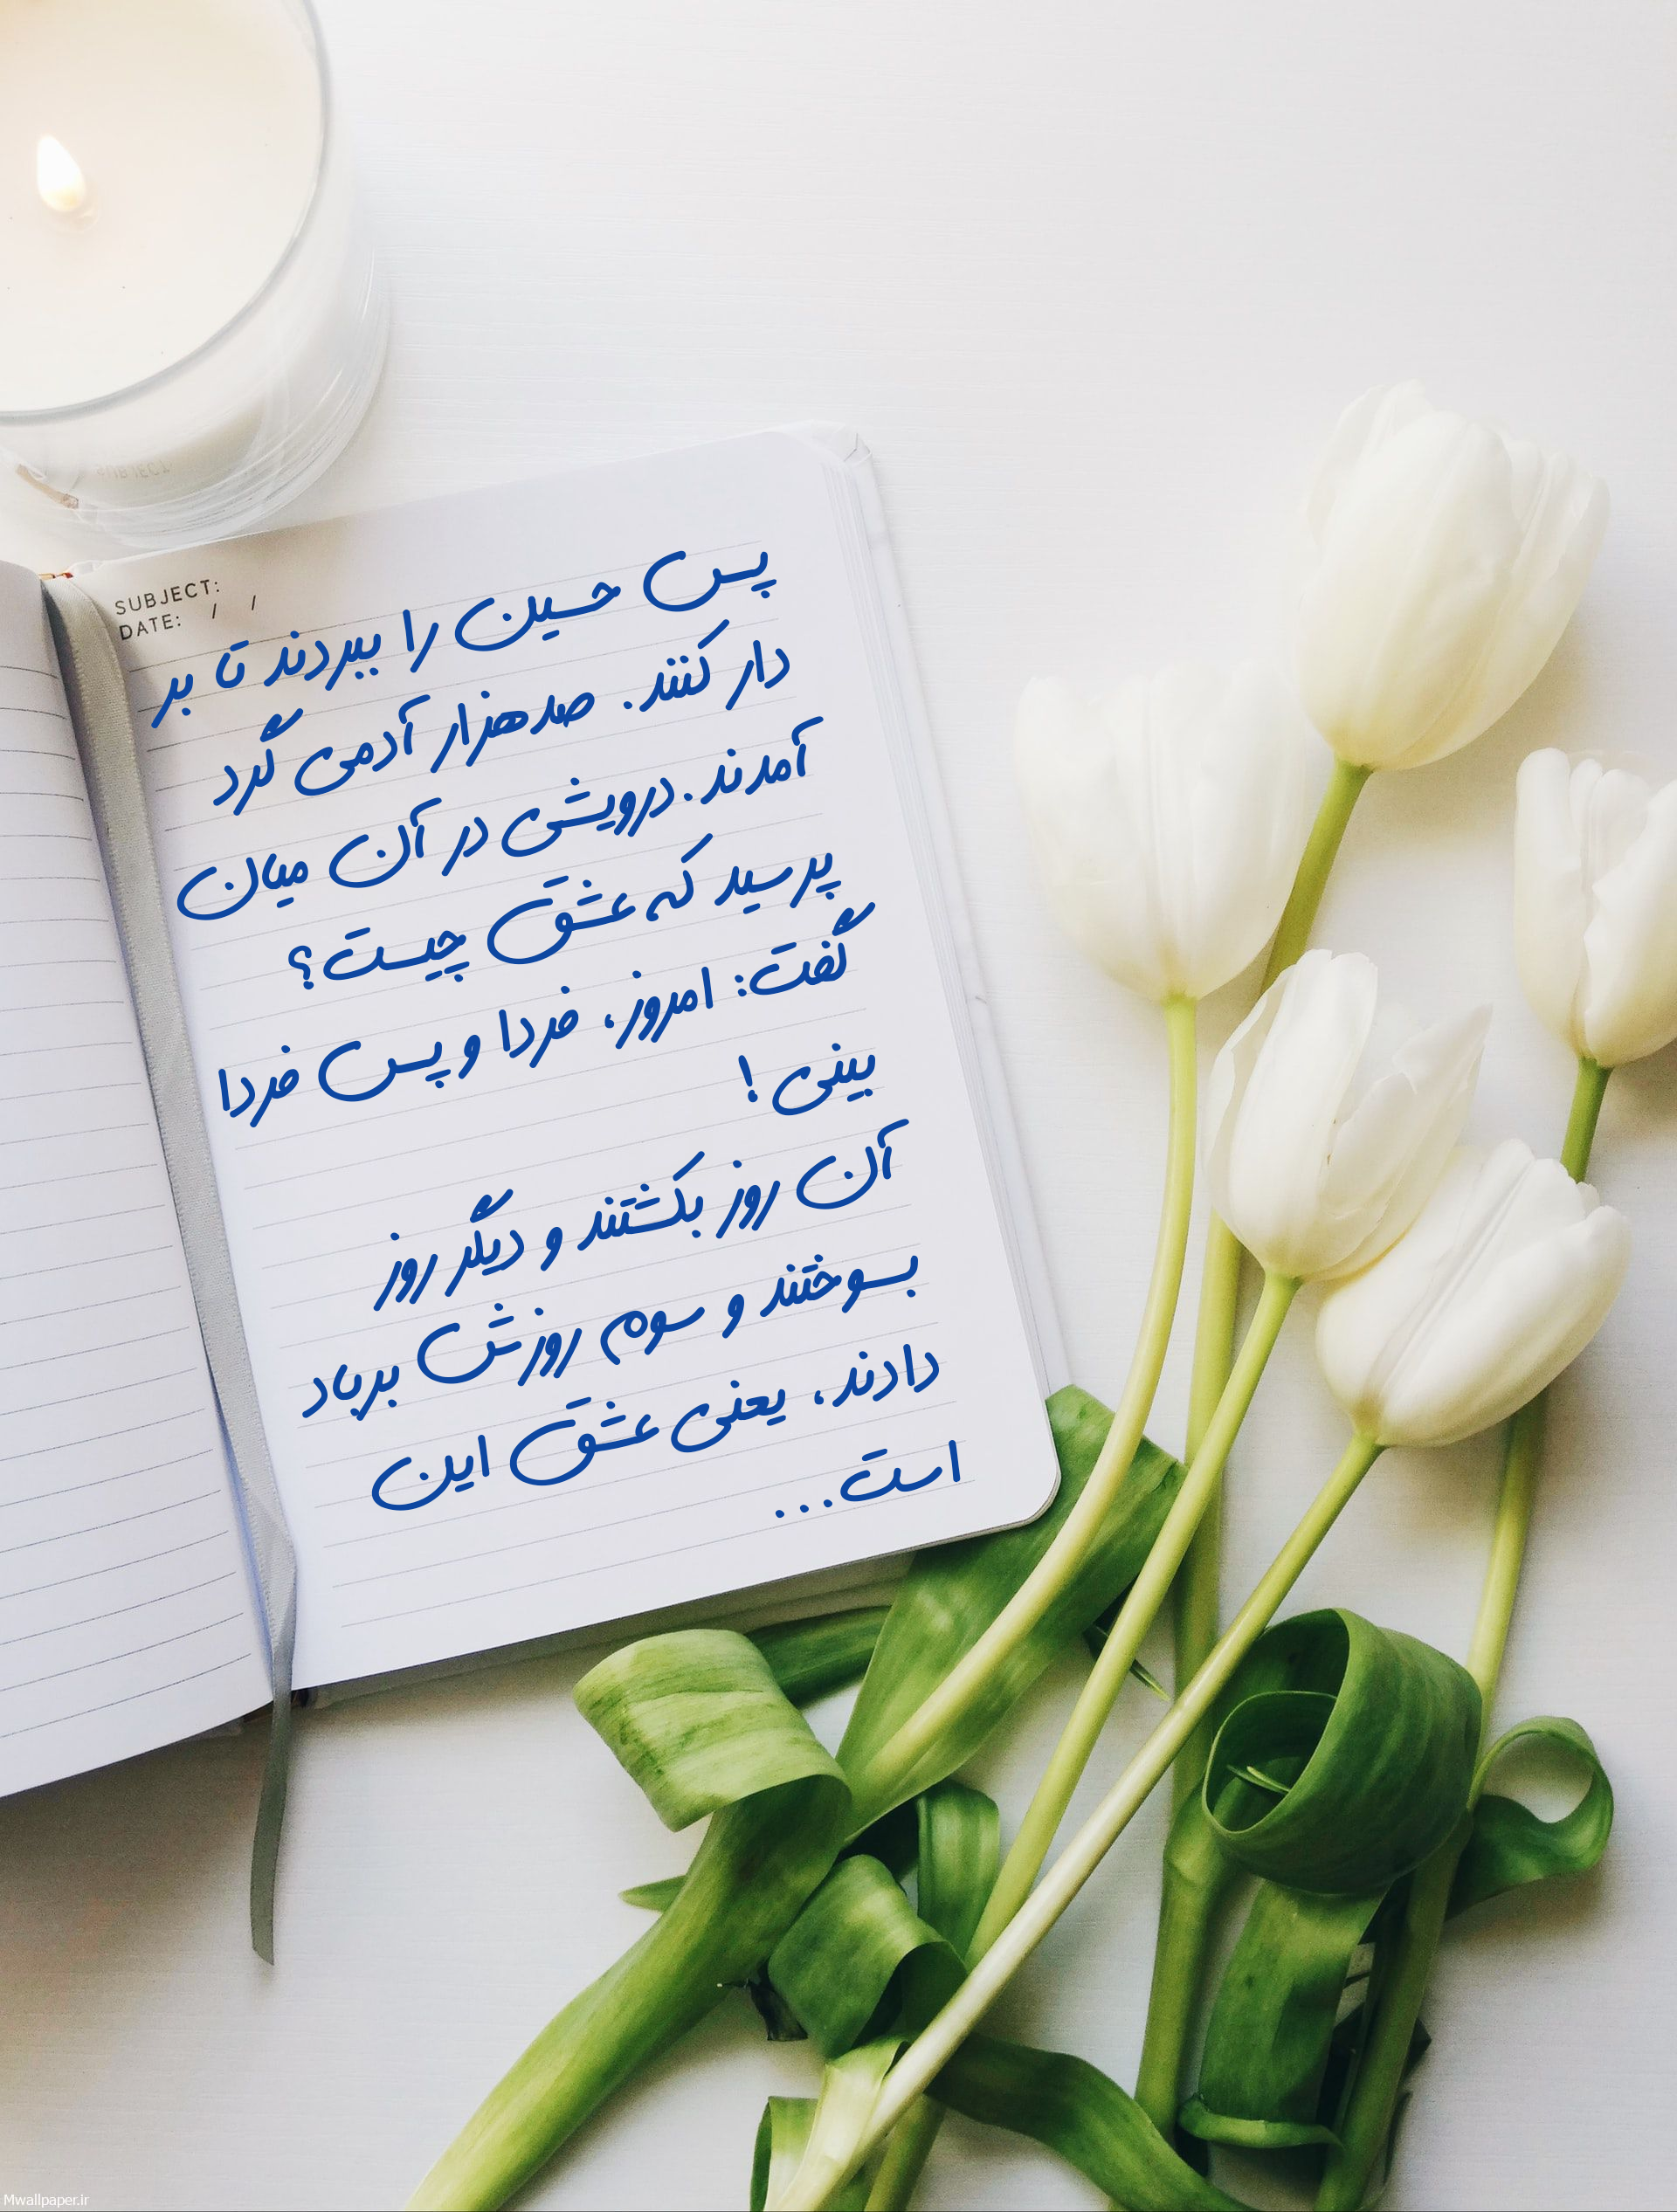 SUBJECT:
DATE: / /
پس حسین را ببردند تا بر
دار کنند. صدهزار آدمی گرد
آمدند. درویشی در آن میان
پرسید که عشق چیست؟
گفت: امروز، فردا و پس فردا
بینی!
آن روز بکشتند و دیگر روز
بسوختند و سوم روزش برباد
دادند، یعنی عشق این
است...
Mwallpaper.ir